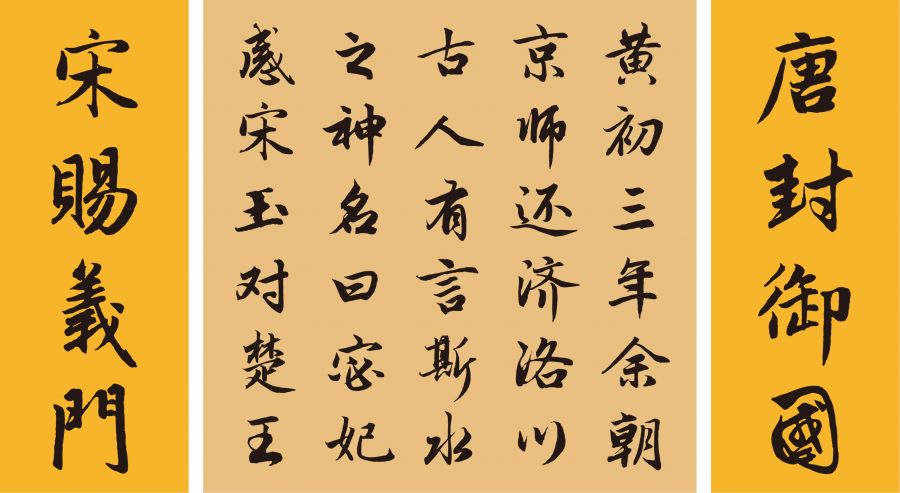 唐封御國
黄初三年余朝
京师还济洛川
古人有言斯水
之神名曰宓妃
感宋玉对楚王
宋賜義門